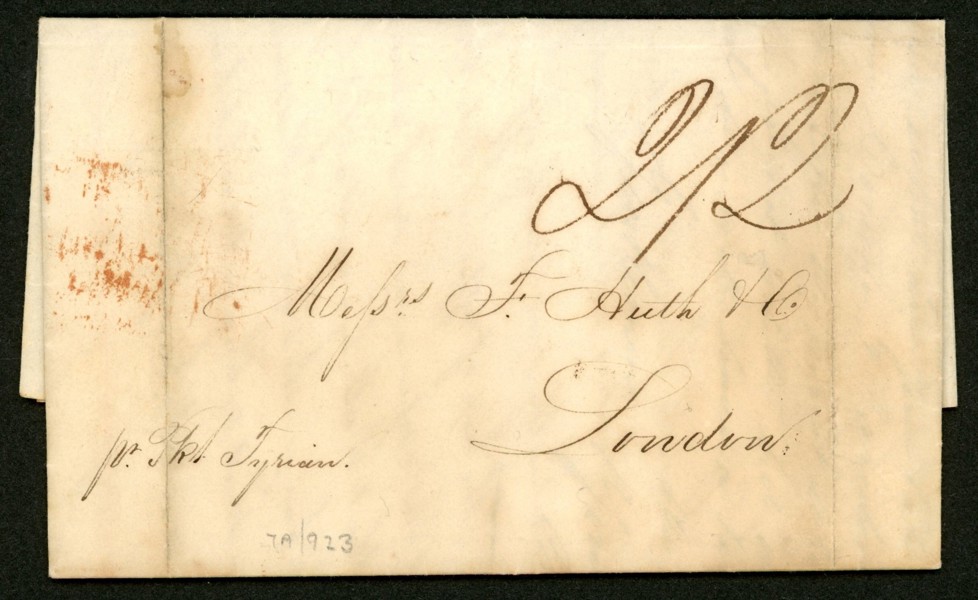 2/2
Messrs F. Huth & Co
London.
pr. Pkt. Tyrian.
7A/923